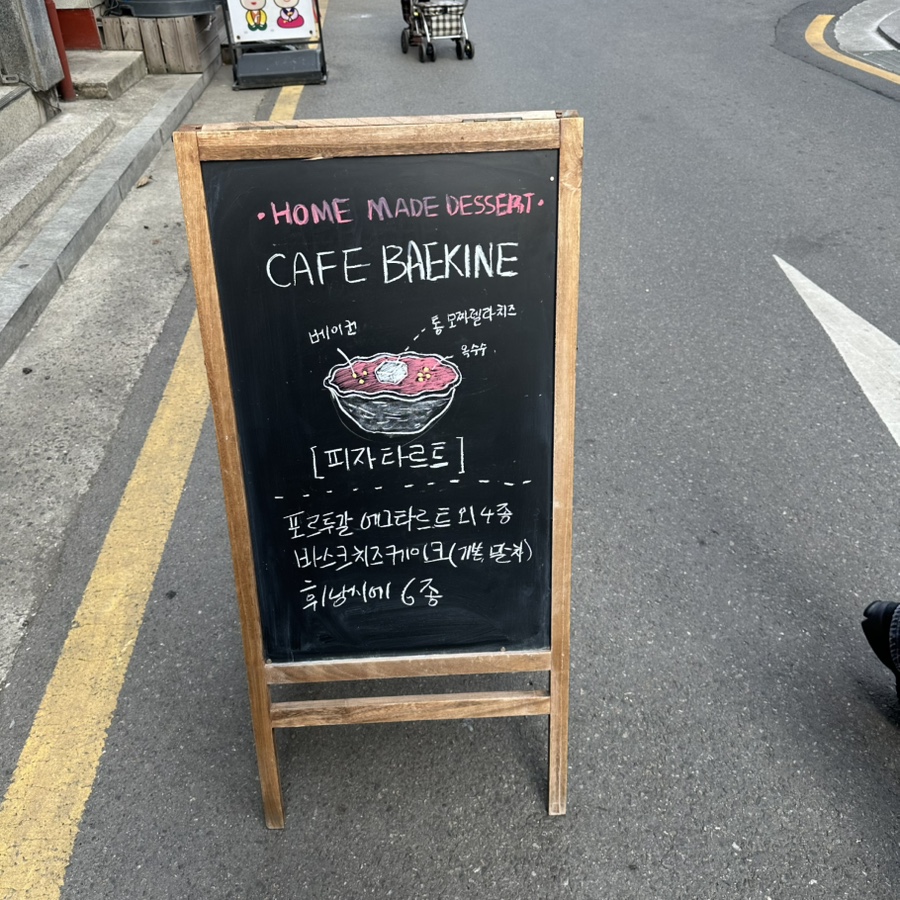 ·HOME MADE DESSERT·
CAFE BAEKINE
베이컨
통 모짜렐라 치즈
옥수수
[피자타르트]
포르투갈 에그타르트 외 4종
바스크치즈케이크(기본, 말차)
휘낭시에 6종